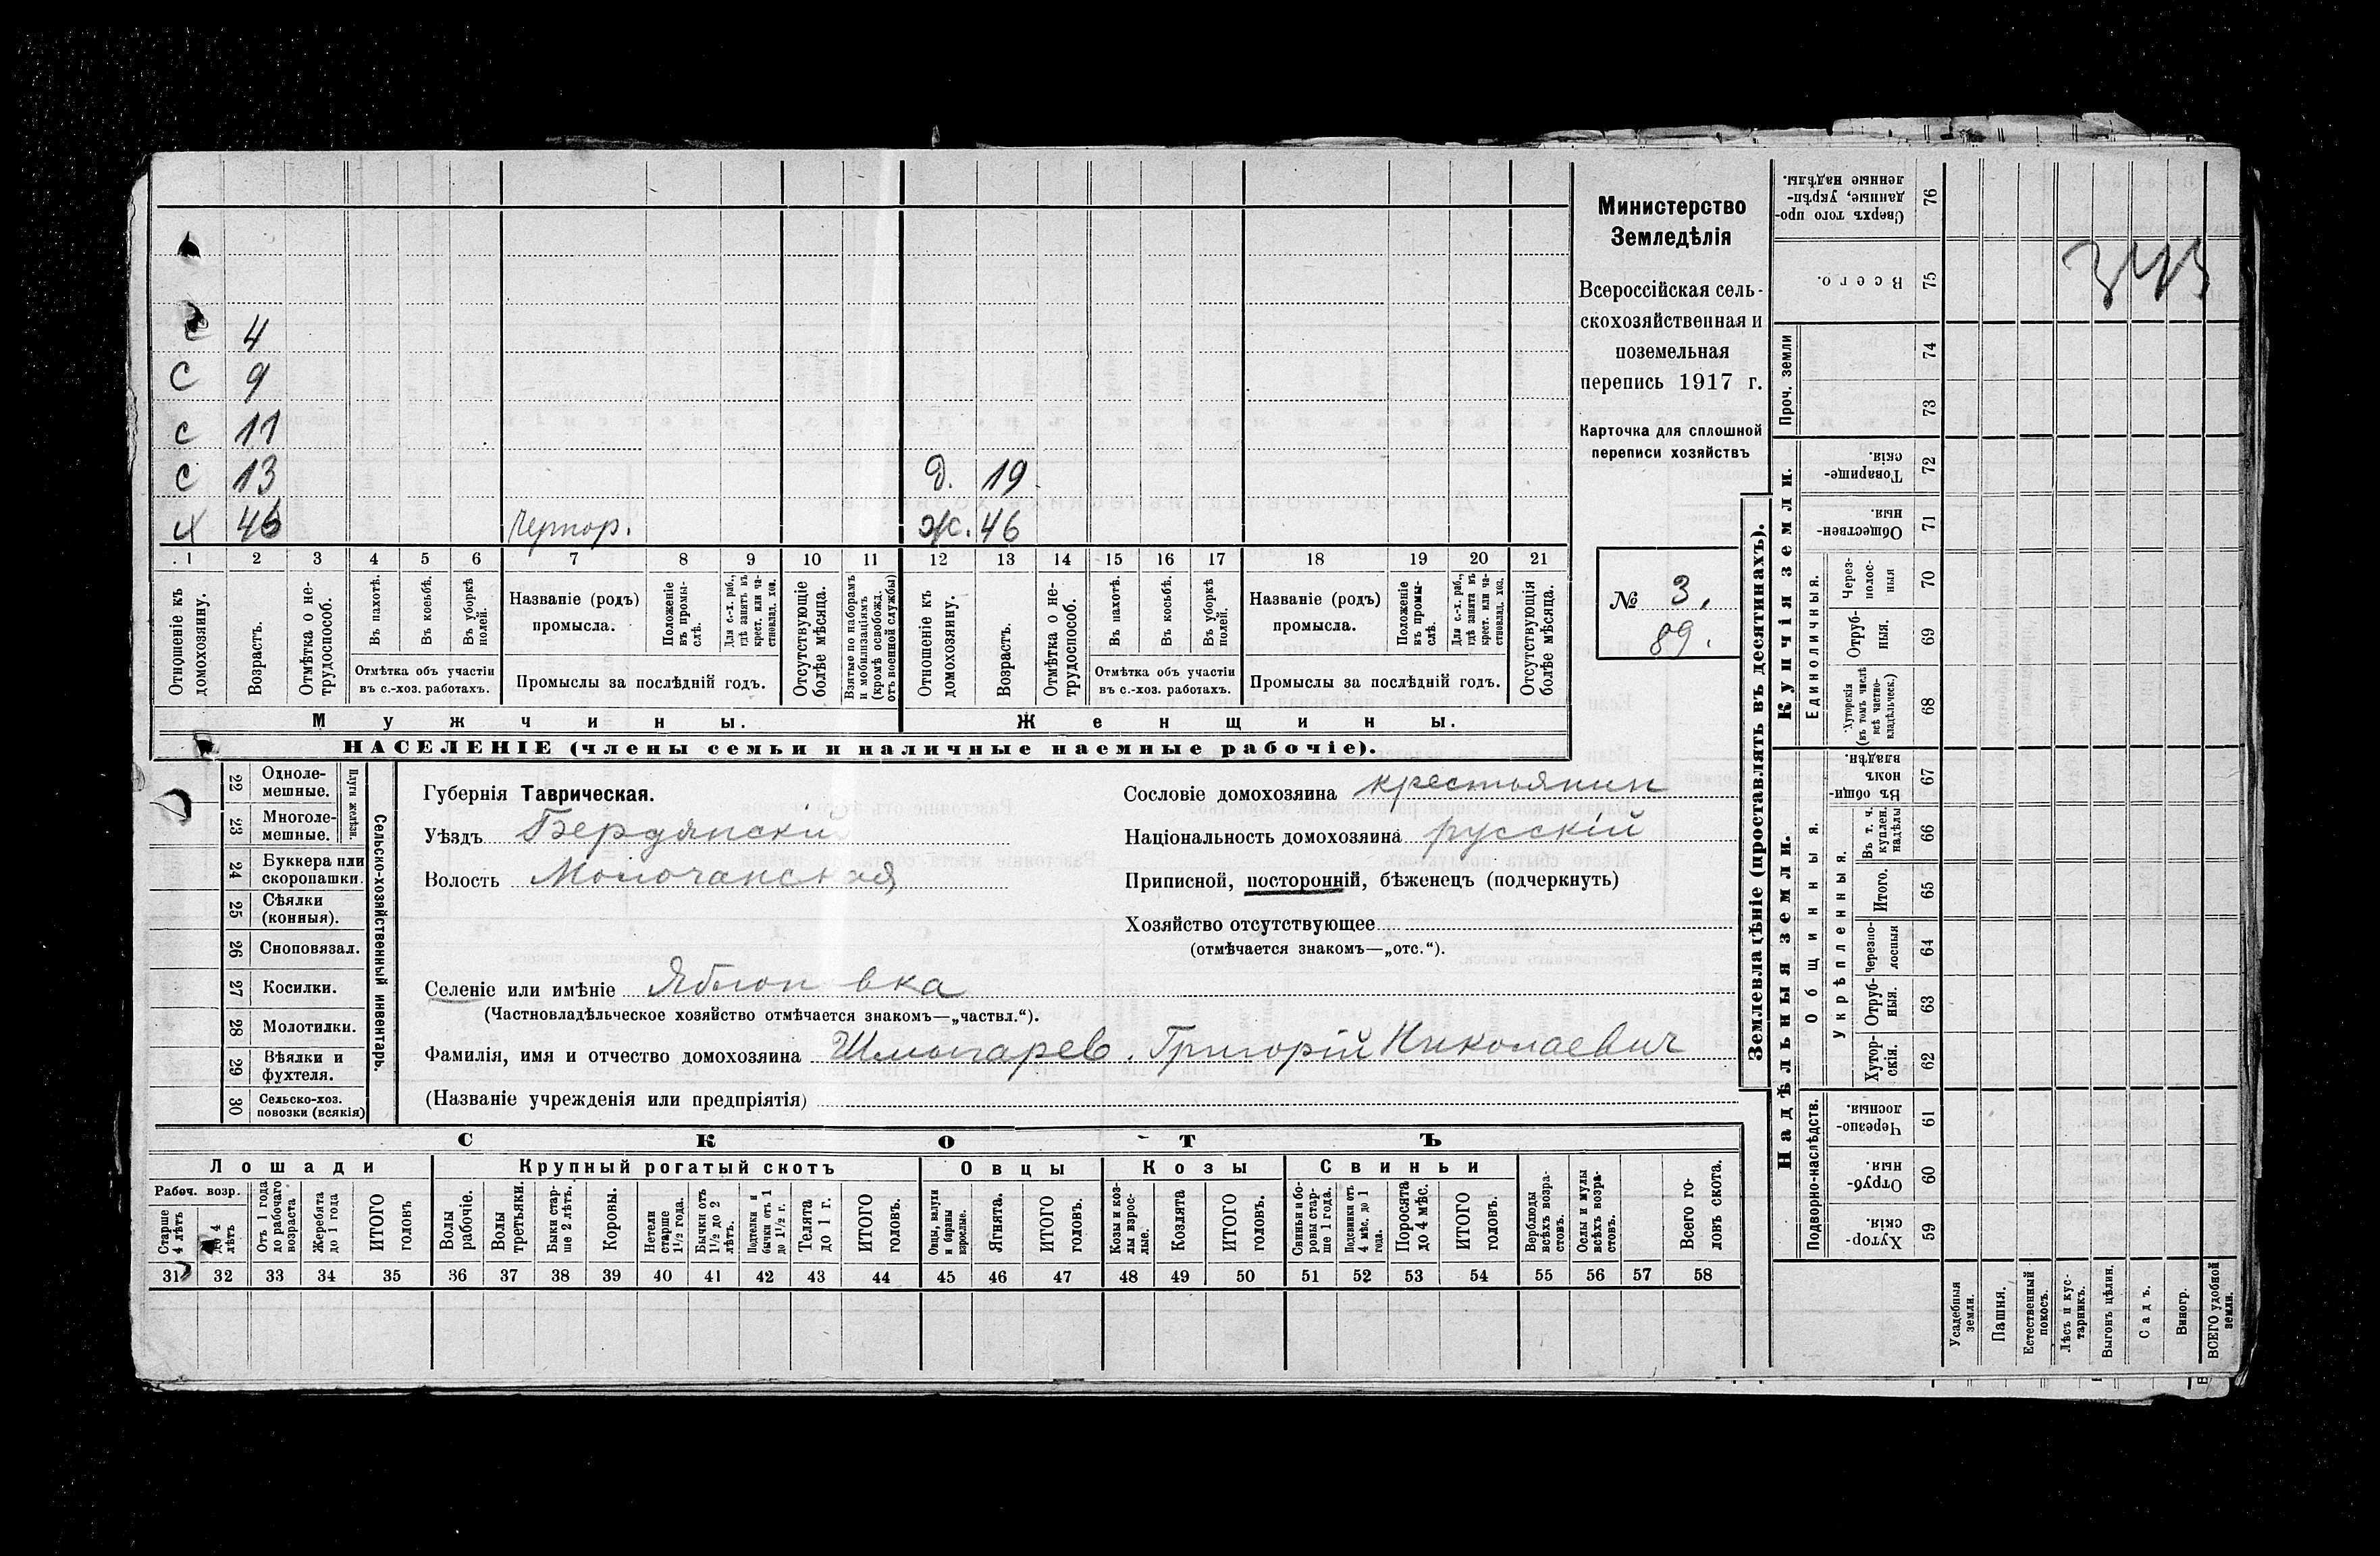 Министерство
Земледѣлія
Всероссійская сель-
скохозяйственная и
поземельная
перепись 1917 г.
Карточка для сплошной
переписи хозяйствъ
№ 3.
89.
с 4
с 9
с 11
с 13 д. 19
х 46 Чернор. ж. 46
1 2 3 4 5 6 7 8 9 10 11 12 13 14 15 16 17 18 19 20 21
Отношеніе къ домохозяину.
Возрастъ.
Отмѣтка о не-трудоспособ.
Въ пахотѣ.
Въ косьбѣ.
Въ уборкѣ полей.
Отмѣтка объ участіи
въ с.-хоз. работахъ.
Названіе (родъ)
промысла.
Положеніе въ промы-слѣ.
Для с.-х. раб., гдѣ занятъ въ крест. или ча-стновлад. хоз.
Промыслы за послѣдній годъ.
Отсутствующіе болѣе мѣсяца.
Взятые по наборамъ и мобилизаціямъ (кромѣ освобожд. отъ военной службы)
Отношеніе къ домохозяину.
Возрастъ.
Отмѣтка о не-трудоспособ.
Въ пахотѣ.
Въ косьбѣ.
Въ уборкѣ полей.
Отмѣтка объ участіи
въ с.-хоз. работахъ.
Названіе (родъ)
промысла.
Положеніе въ промы-слѣ.
Для с.-х. раб., гдѣ занята въ крест. или ча-стновлад. хоз.
Промыслы за послѣдній годъ.
Отсутствующія болѣе мѣсяца.
Мужчины. Женщины.
НАСЕЛЕНІЕ (члены семьи и наличные наемные рабочіе).
22 Одноле-мешные.
23 Многоле-мешные.
Плуги желѣзн.
24 Буккера или скоропашки.
25 Сѣялки (конныя).
26 Сноповязал.
27 Косилки.
28 Молотилки.
29 Вѣялки и фухтеля.
30 Сельско-хоз. повозки (всякія)
Сельско-хозяйственный инвентарь.
Губернія Таврическая.
Уѣздъ Бердянскій
Волость Молочанская
Селеніе или имѣніе Яблоновка
(Частновладѣльческое хозяйство отмѣчается знакомъ—„частвл.“).
Фамилія, имя и отчество домохозяина Шмыгарев. Григорій Николаевич
(Названіе учрежденія или предпріятія)
Сословіе домохозяина крестьянин
Національность домохозяина русскій
Приписной, посторонній, бѣженецъ (подчеркнуть)
Хозяйство отсутствующее
(отмѣчается знакомъ—„отс.“).
СКОТЪ
Лошади Крупный рогатый скотъ Овцы Козы Свиньи
Рабоч. возр.
Старше 4 лѣтъ
до 4 лѣтъ
Отъ 1 года до рабочаго возраста
Жеребята до 1 года
ИТОГО головъ
Волы рабочіе.
Волы третьяки.
Быки стар-ше 2 лѣтъ.
Коровы.
Нетели старше 1½ года.
Бычки отъ 1½ до 2 лѣтъ.
Подтелки и бычки отъ 1 до 1½ г.
Телята до 1 г.
ИТОГО головъ.
Овцы, валухи и бараны взрослые.
Ягнята.
ИТОГО головъ.
Козы и коз-лы взрос-лые.
Козлята
ИТОГО головъ.
Свиньи и бо-ровы стар-ше 1 года.
Подсвинки отъ 4 мѣс. до 1 года.
Поросята до 4 мѣс.
ИТОГО головъ.
Верблюды всѣхъ возра-стовъ.
Ослы и мулы всѣхъ возра-стовъ.
Всего го-ловъ скота.
31 32 33 34 35 36 37 38 39 40 41 42 43 44 45 46 47 48 49 50 51 52 53 54 55 56 57 58
Землевладѣніе (проставлять въ десятинахъ).
Надѣльныя земли. Купчія земли.
Проч. земли
Подворно-наслѣдств.
Общинныя.
Укрѣпленныя.
Единоличныя.
Сверхъ того про-данные, укрѣп-ленные надѣлы. 76
Всего. 75
74
73
Товарище-скія. 72
Обществен-ныя. 71
Через-полос-ныя 70
Отруб-ныя. 69
Хуторскія (въ томъ числѣ всѣ частно-владѣльческ.) 68
Въ общи-номъ владѣн. 67
Въ т. ч. куплен. надѣлы 66
Итого. 65
Черезпо-лосныя 64
Отруб-ныя. 63
Хутор-скія. 62
Черезпо-лосныя. 61
Отруб-ныя. 60
Хутор-скія. 59
Усадебныя земли.
Пашня.
Естественный покосъ.
Лѣсъ и кус-тарникъ.
Выгонъ цѣлин.
Садъ.
Виногр.
ВСЕГО удобной земли.